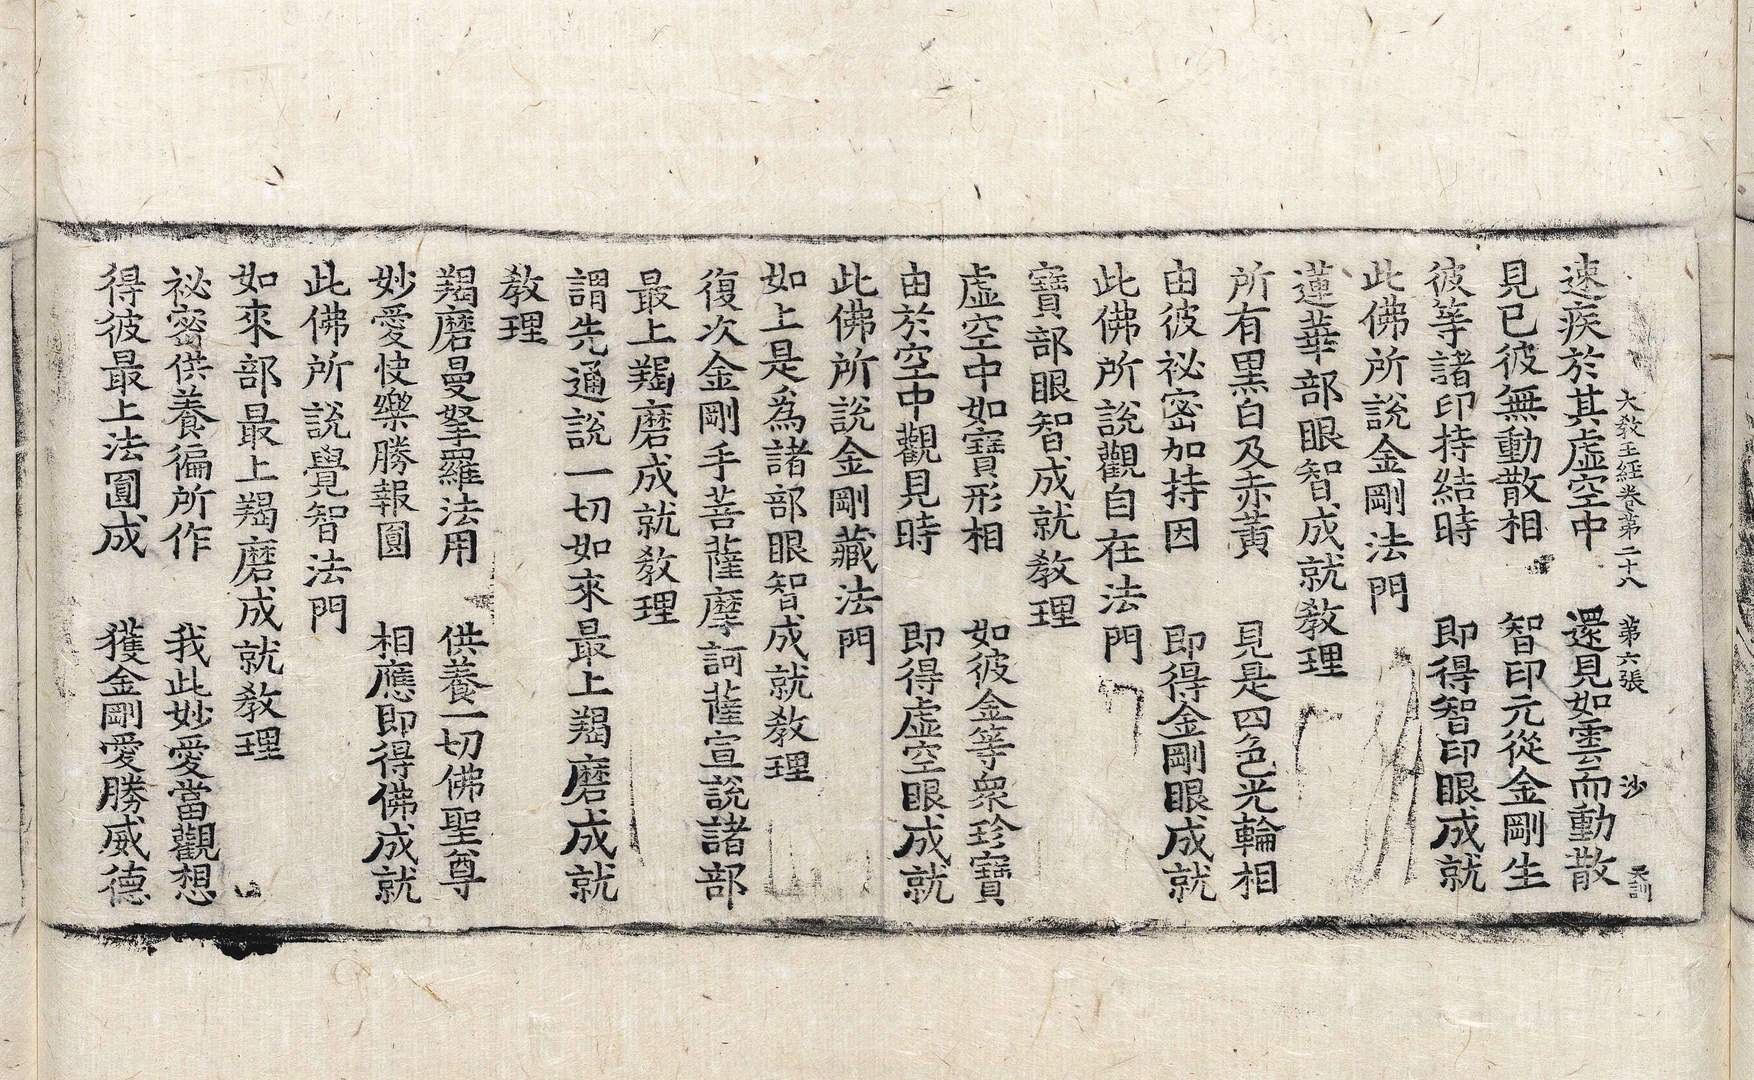 大教王經卷第二十八　第六張　沙　天訓
速疾於其虛空中　還見如雲而動散
見已彼無動散相　智印元從金剛生
彼等諸印持結時　即得智印眼成就
此佛所說金剛法門
蓮華部眼智成就教理
所有黑白及赤黃　見是四色光輪相
由彼祕密加持因　即得金剛眼成就
此佛所說觀自在法門
寶部眼智成就教理
虛空中如寶形相　如彼金等衆珍寶
由於空中觀見時　即得虛空眼成就
此佛所說金剛藏法門
如上是爲諸部眼智成就教理
復次金剛手菩薩摩訶薩宣說諸部
最上羯磨成就教理
謂先通說一切如來最上羯磨成就
教理
羯磨曼拏羅法用　供養一切佛聖尊
妙愛快樂勝報圓　相應即得佛成就
此佛所說覺智法門
如來部最上羯磨成就教理
祕密供養徧所作　我此妙愛當觀想
得彼最上法圓成　獲金剛愛勝威德